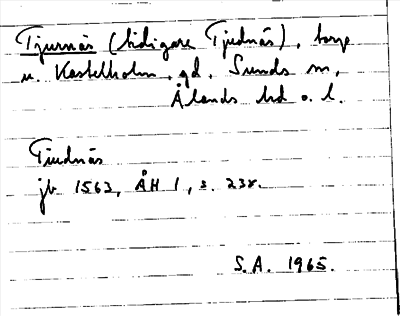 Tjurnäs (tidigare Tjudnäs), torp
u. Kastelholm, gd. Sunds sn,
Ålands hd o. l.
Tiudnäs
jb 1563, ÅH 1, s. 238.
S.A. 1965.